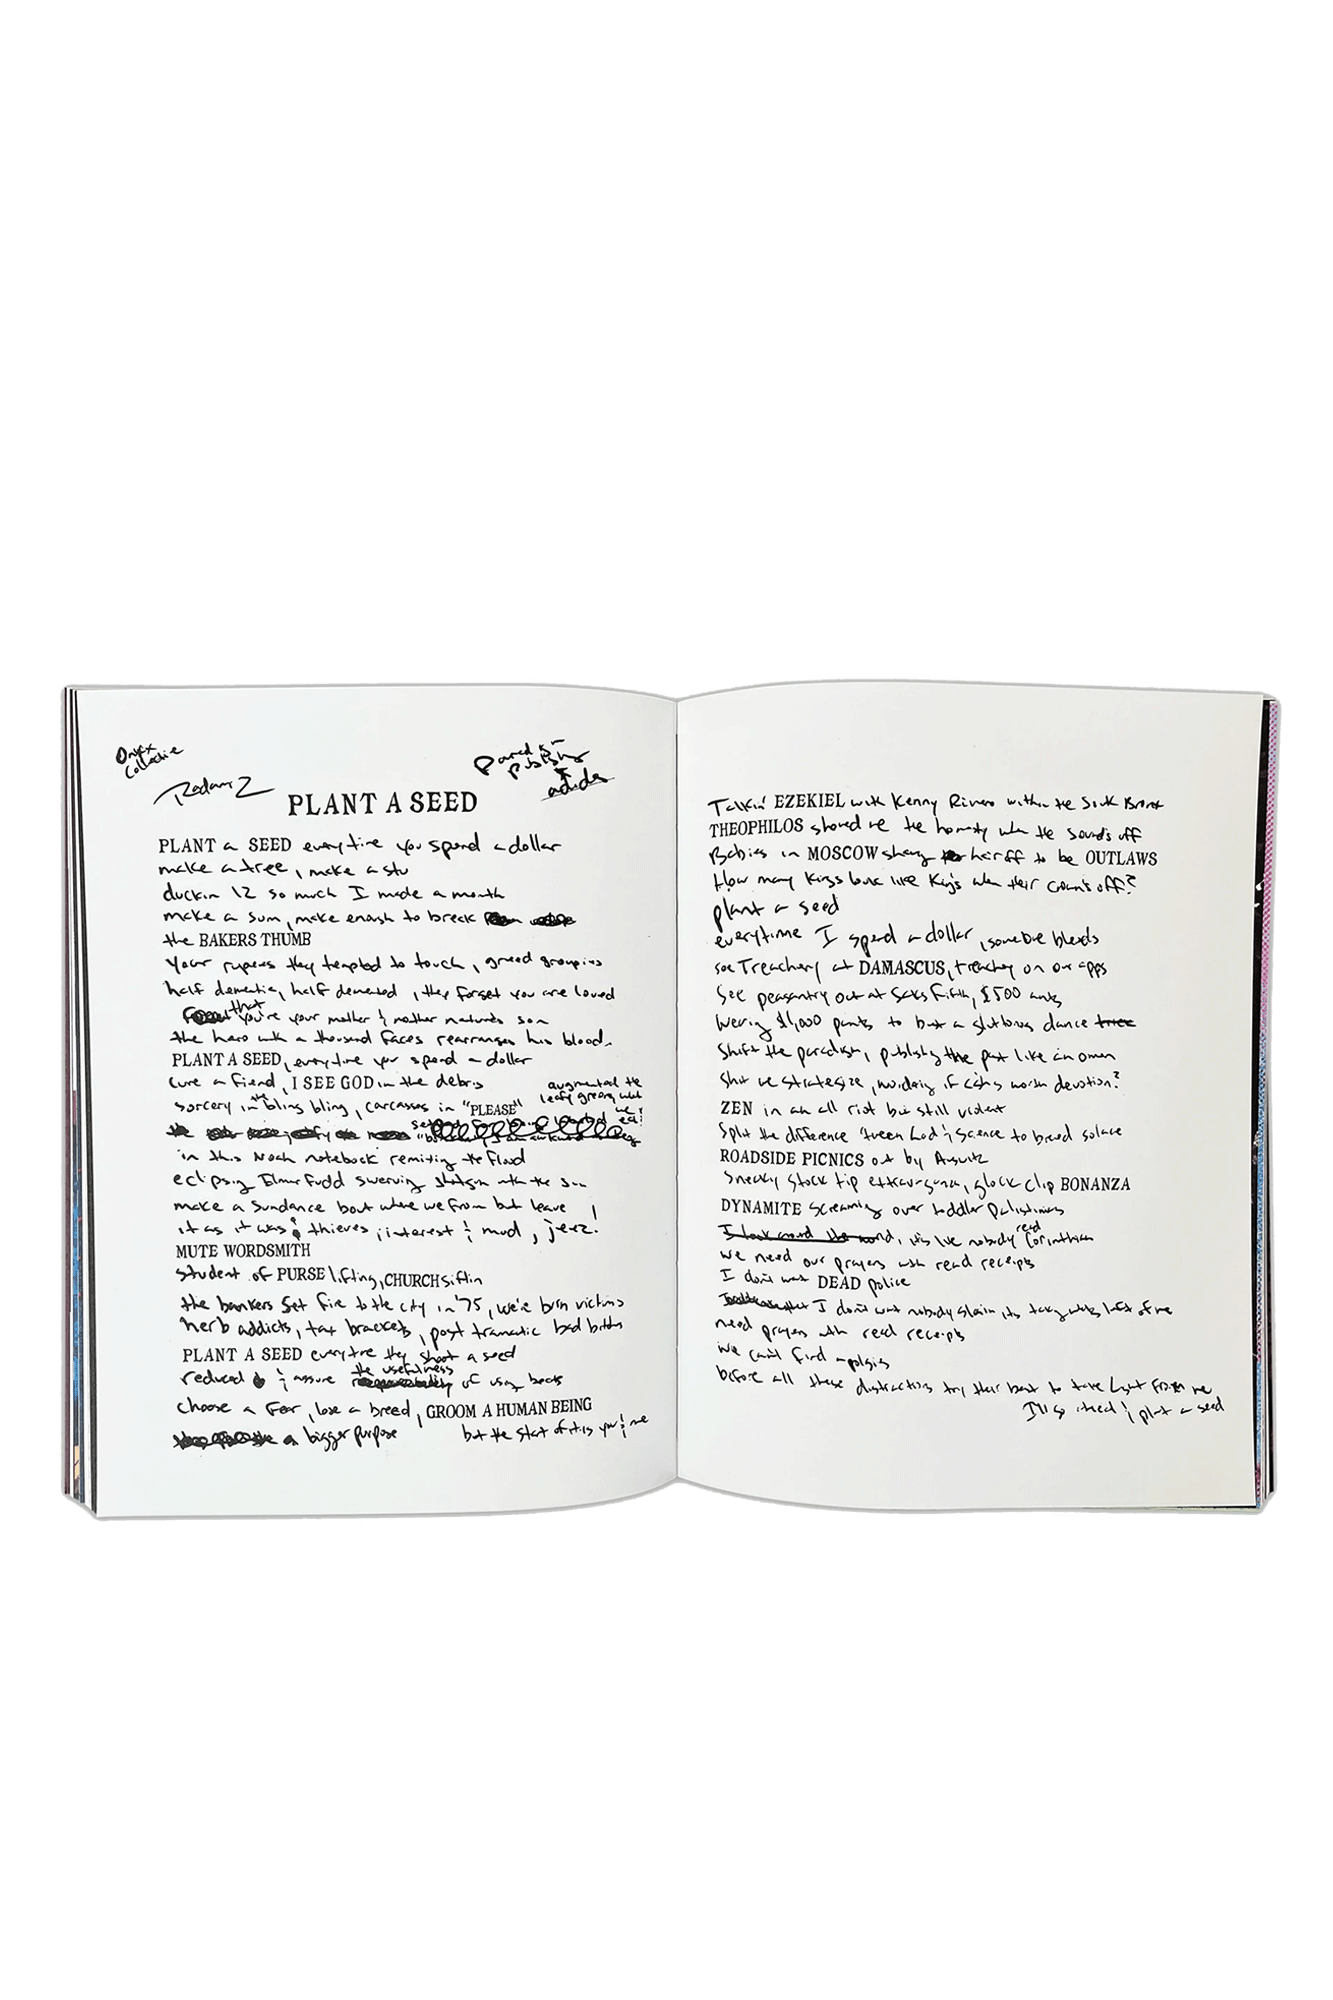 Onyx
Collective
Radamiz
Paradigm
Publishing
x
adidas
PLANT A SEED
PLANT a SEED everytime you spend a dollar
make a tree, make a stu
duckin 12 so much I made a month
make a sum, make enough to break
the BAKERS THUMB
Your rupees they tempted to touch, greed groupies
half dementia, half demented, they forget you are loved
that you're your mother & mother nature's son
the hero with a thousand faces rearranges his blood.
PLANT A SEED, everytime you spend a dollar
cure a fiend, I SEE GOD in the debris
augmented the
leafy greens what
we
eat?
sorcery in the bling bling, carcasses in "PLEASE"
in this Noah notebook remixing the flood
eclipsing Elmer Fudd swerving shotgun with the sun
make a Sundance bout where we from but leave
it as it was & thieves, interest & mud, jeez!
MUTE WORDSMITH
student of PURSE lifting, CHURCH siftin
the bankers set fire to the city in '75, we're burn victims
herb addicts, tax brackets, post tramatic bad bitches
PLANT A SEED everytime they shoot a seed
reduced & assure the usefulness of using beats
choose a fear, lose a breed, GROOM A HUMAN BEING
a bigger purpose but the start of it is you & me
Talkin' EZEKIEL with Kenny Rivero within the South Bronx
THEOPHILOS showed me the honesty when the sound's off
Babies in MOSCOW hair off to be OUTLAWS
How many Kings look like Kings when their crown's off?
plant a seed
everytime I spend a dollar, someone bleeds
see Treachery at DAMASCUS, treachery on our apps
See peasantry out at Saks Fifth, $500
wearing $1,000 pants to bust a gluttonous dance
Shift the paradigm, publishing the past like an omen
Shit we strategize, wondering if cash's worth devotion?
ZEN in an all riot but still violent
Split the difference 'tween God & Science to breed solace
ROADSIDE PICNICS out by
Sneaky stock tip extravaganza, glock clip BONANZA
DYNAMITE screaming over toddler Palestinians
I look around the world, it's like nobody read Corinthians
we need our prayers with read receipts
I don't want DEAD police
I don't want nobody slain, its taking what's left of me
need prayers with read receipts
we can't find apologies
before all these distractions try their best to take Light from me
I'll go ahead & plant a seed